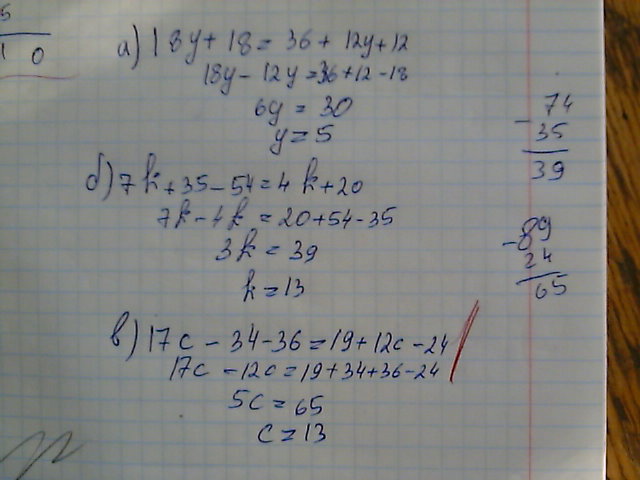 5
1 0
а) 18y + 18 = 36 + 12y + 12
18y - 12y = 36 + 12 - 18
6y = 30
y = 5
б) 7k + 35 - 54 = 4k + 20
7k - 4k = 20 + 54 - 35
3k = 39
k = 13
в) 17c - 34 - 36 = 19 + 12c - 24
17c - 12c = 19 + 34 + 36 - 24
5c = 65
c = 13
- 74
35
39
- 89
24
65